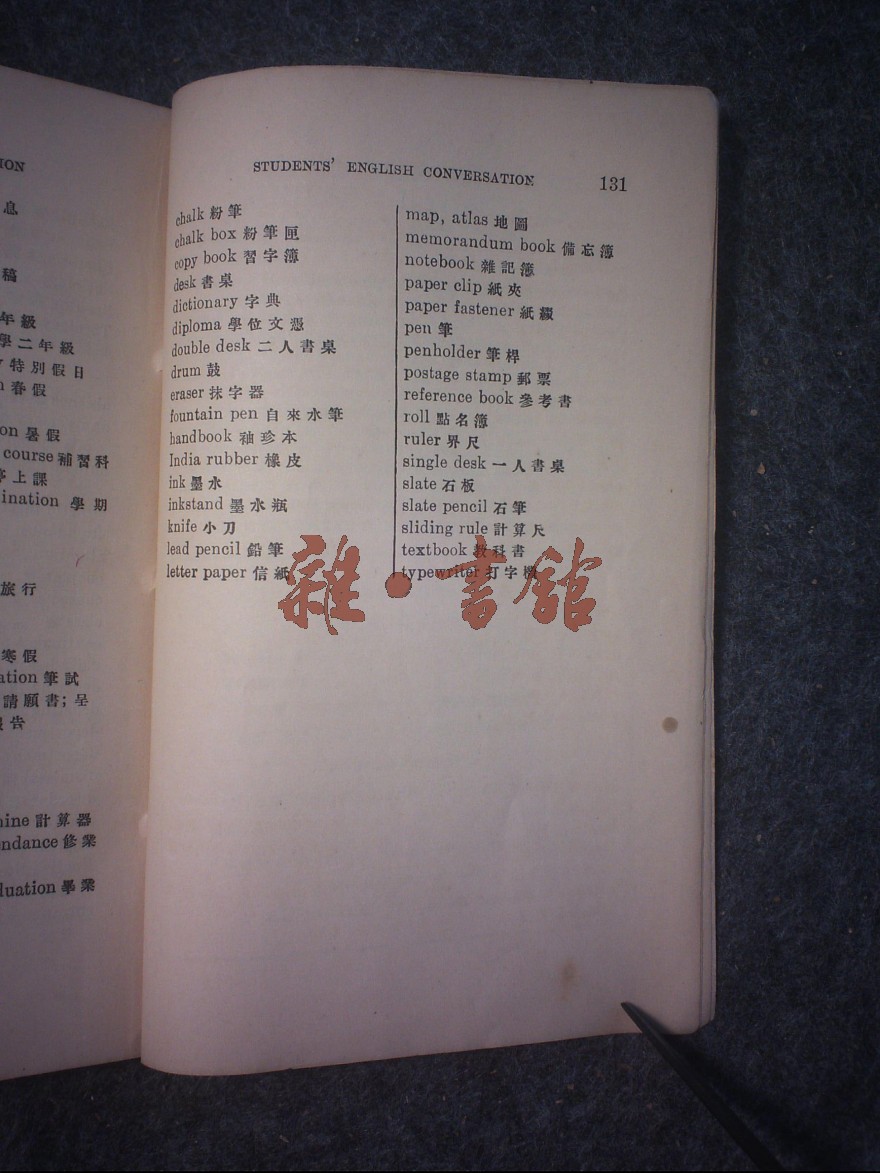 ION
息
稿
年級
學二年級
特別假日
春假
on 暑假
course 補習科
上課
ination 學期
旅行
寒假
ation 筆試
請願書; 呈
告
ine 計算器
ndance 修業
duation 學業
STUDENTS' ENGLISH CONVERSATION 131
chalk 粉筆
chalk box 粉筆匣
copy book 習字簿
desk 書桌
dictionary 字典
diploma 學位文憑
double desk 二人書桌
drum 鼓
eraser 抹字器
fountain pen 自來水筆
handbook 袖珍本
India rubber 橡皮
ink 墨水
inkstand 墨水瓶
knife 小刀
lead pencil 鉛筆
letter paper 信紙
map, atlas 地圖
memorandum book 備忘簿
notebook 雜記簿
paper clip 紙夾
paper fastener 紙綴
pen 筆
penholder 筆桿
postage stamp 郵票
reference book 參考書
roll 點名簿
ruler 界尺
single desk 一人書桌
slate 石板
slate pencil 石筆
sliding rule 計算尺
textbook 教科書
typewriter 打字機
雜·書館